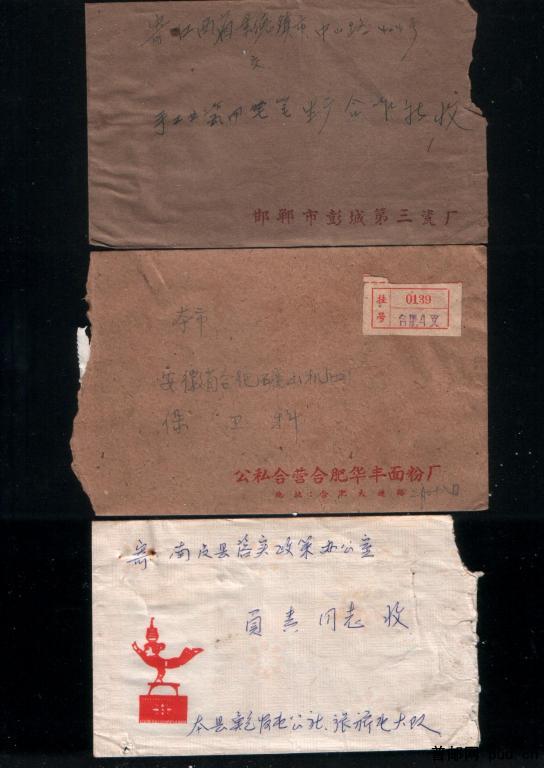 寄江西省景德镇市中山路404号
交
手工业瓷用毛笔生产合作社收
邯郸市彭城第三瓷厂
挂号
0139
合肥4支
本市
安徽省合肥
保卫科
公私合营合肥华丰面粉厂
地址：合肥大通路
寄 南皮县落实政策办公室
同志 收
本县 公社、张 大队
首邮网